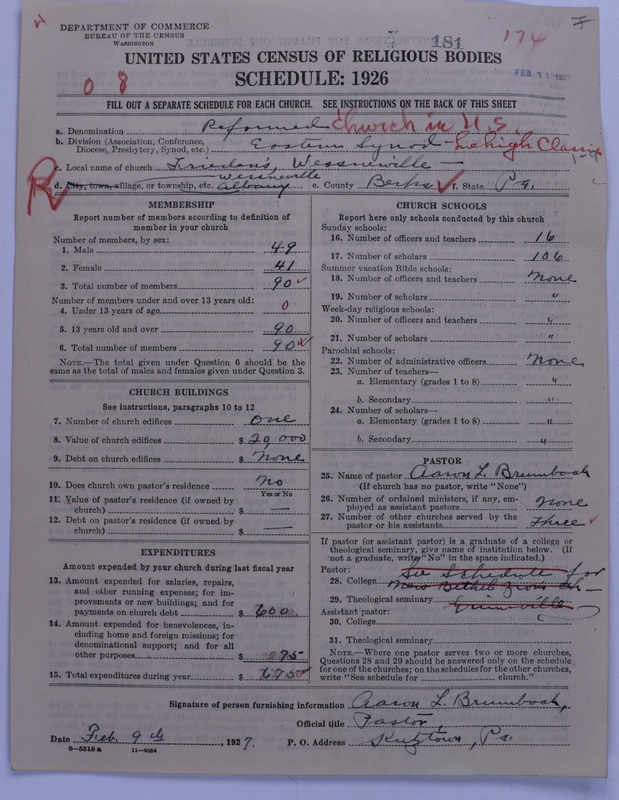 DEPARTMENT OF COMMERCE
BUREAU OF THE CENSUS
WASHINGTON
181
174
FEB 11 1927
UNITED STATES CENSUS OF RELIGIOUS BODIES
SCHEDULE: 1926
0 8
FILL OUT A SEPARATE SCHEDULE FOR EACH CHURCH. SEE INSTRUCTIONS ON THE BACK OF THIS SHEET
a. Denomination Reformed Church in U.S.
b. Division (Association, Conference, Diocese, Presbytery, Synod, etc.) Eastern Synod - Lehigh Classis
c. Local name of church Frieden's, Wessnerville
Wessnerville
d. City, town, village, or township, etc. Albany e. County Berks f. State Pa.
R
MEMBERSHIP
Report number of members according to definition of member in your church
Number of members, by sex:
1. Male 49
2. Female 41
3. Total number of members 90
Number of members under and over 13 years old:
4. Under 13 years of age 0
5. 13 years old and over 90
6. Total number of members 90
NOTE.—The total given under Question 6 should be the same as the total of males and females given under Question 3.
CHURCH BUILDINGS
See instructions, paragraphs 10 to 12
7. Number of church edifices one
8. Value of church edifices $ 20,000
9. Debt on church edifices $ None
10. Does church own pastor's residence No
Yes or No
11. Value of pastor's residence (if owned by church) $ —
12. Debt on pastor's residence (if owned by church) $ —
EXPENDITURES
Amount expended by your church during last fiscal year
13. Amount expended for salaries, repairs, and other running expenses; for improvements or new buildings; and for payments on church debt $ 600
14. Amount expended for benevolences, including home and foreign missions; for denominational support; and for all other purposes $ 275
15. Total expenditures during year $ 675
CHURCH SCHOOLS
Report here only schools conducted by this church
Sunday schools:
16. Number of officers and teachers 16
17. Number of scholars 106
Summer vacation Bible schools:
18. Number of officers and teachers None
19. Number of scholars "
Week-day religious schools:
20. Number of officers and teachers "
21. Number of scholars "
Parochial schools:
22. Number of administrative officers None
23. Number of teachers—
a. Elementary (grades 1 to 8) "
b. Secondary "
24. Number of scholars—
a. Elementary (grades 1 to 8) "
b. Secondary "
PASTOR
25. Name of pastor Aaron L. Brumbach
(If church has no pastor, write "None")
26. Number of ordained ministers, if any, employed as assistant pastors None
27. Number of other churches served by the pastor or his assistants Three
If pastor (or assistant pastor) is a graduate of a college or theological seminary, give name of institution below. (If not a graduate, write "No" in the space indicated.)
Pastor: See Schedule for
28. College New Bethel Zion Ch—
29. Theological seminary
Assistant pastor:
30. College
31. Theological seminary
NOTE.—Where one pastor serves two or more churches, Questions 28 and 29 should be answered only on the schedule for one of the churches; on the schedules for the other churches, write "See schedule for ______ church."
Signature of person furnishing information Aaron L. Brumbach,
Official title Pastor,
Date Feb. 9th, 1927. P. O. Address Kutztown, Pa.
8—5518 a 11—9054